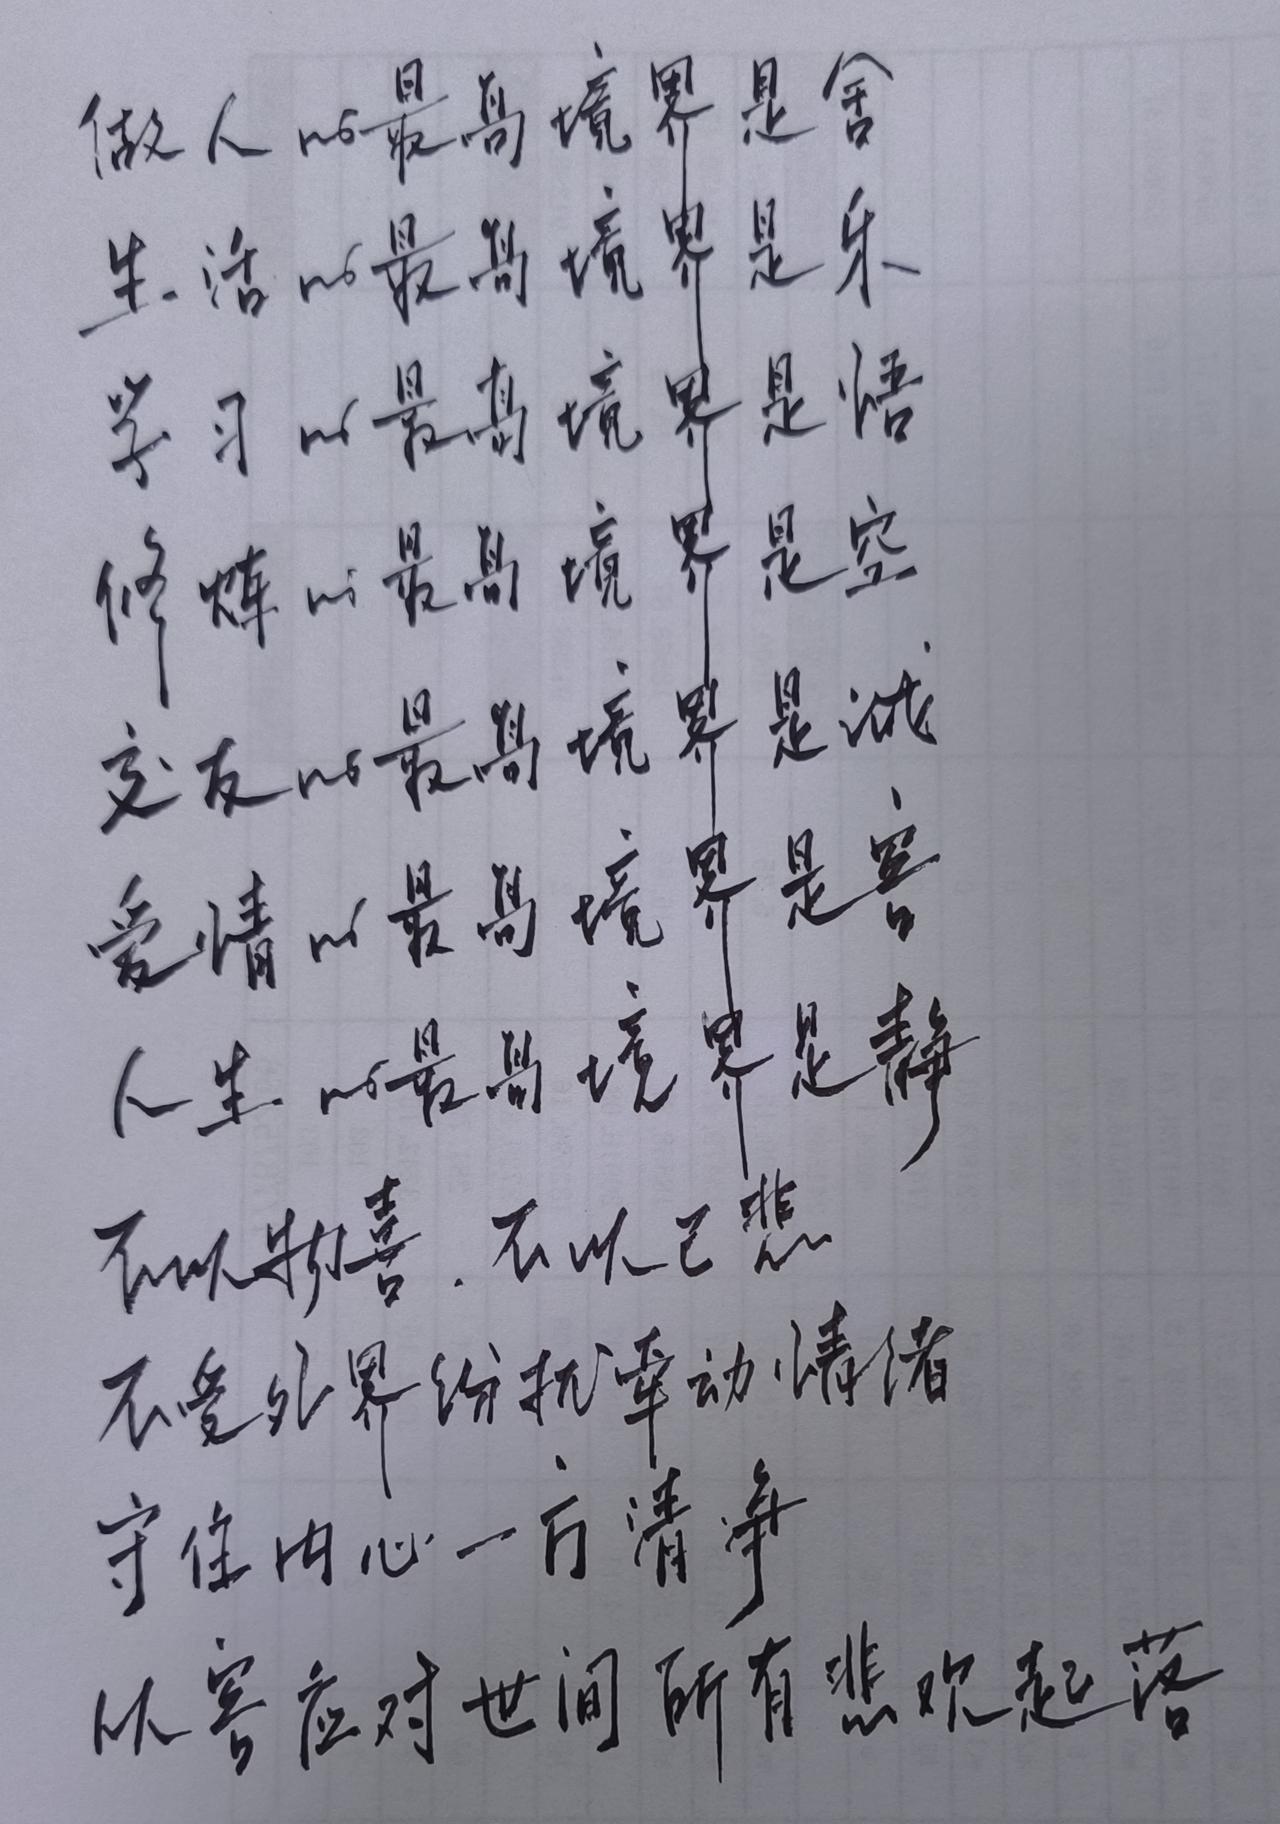 做人的最高境界是舍
生活的最高境界是乐
学习的最高境界是悟
修炼的最高境界是空
交友的最高境界是诚
爱情的最高境界是容
人生的最高境界是静
不以物喜.不以己悲
不受外界纷扰牵动情绪
守住内心一方清净
从容应对世间所有悲欢起落